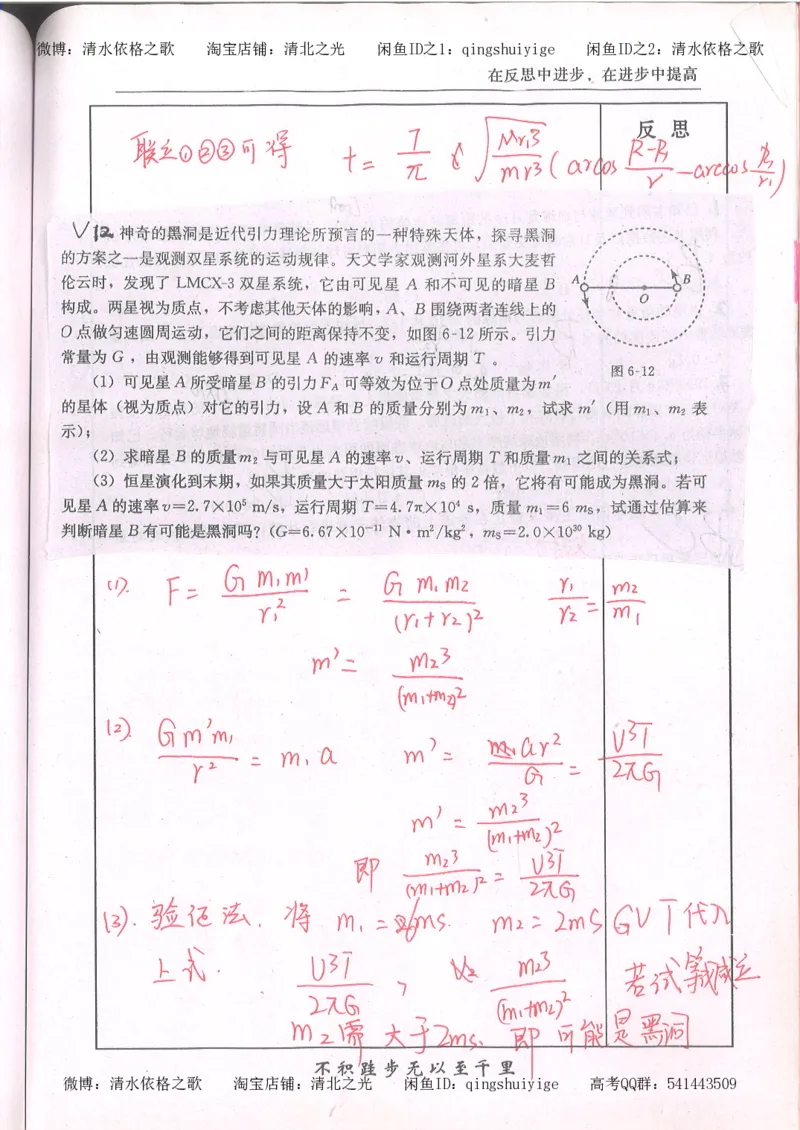 微博：清水依格之歌 淘宝店铺：清北之光 闲鱼ID之1：qingshuiyige 闲鱼ID之2：清水依格之歌
在反思中进步，在进步中提高
反 思
联立①②③可得 t= T/π √(Mr₁³/mr³) (arccos (R-R₁)/r -arccos /r₁)
√12 神奇的黑洞是近代引力理论所预言的一种特殊天体，探寻黑洞
的方案之一是观测双星系统的运动规律。天文学家观测河外星系大麦哲
伦云时，发现了 LMCX-3 双星系统，它由可见星 A 和不可见的暗星 B
构成。两星视为质点，不考虑其他天体的影响，A、B 围绕两者连线上的
O 点做匀速圆周运动，它们之间的距离保持不变，如图 6-12 所示。引力
常量为 G ，由观测能够得到可见星 A 的速率 v 和运行周期 T 。
A
B
O
图 6-12
（1）可见星 A 所受暗星 B 的引力 F_A 可等效为位于 O 点处质量为 m′
的星体（视为质点）对它的引力，设 A 和 B 的质量分别为 m₁、m₂，试求 m′（用 m₁、m₂ 表
示）；
（2）求暗星 B 的质量 m₂ 与可见星 A 的速率 v、运行周期 T 和质量 m₁ 之间的关系式；
（3）恒星演化到末期，如果其质量大于太阳质量 m_S 的 2 倍，它将有可能成为黑洞。若可
见星 A 的速率 v=2.7×10⁵ m/s，运行周期 T=4.7π×10⁴ s，质量 m₁=6 m_S，试通过估算来
判断暗星 B 有可能是黑洞吗？（G=6.67×10⁻¹¹ N·m²/kg²，m_S=2.0×10³⁰ kg）
(1). F= Gm₁m′/r₁² = Gm₁m₂/(r₁+r₂)² r₁/r₂ = m₂/m₁
m′= m₂³/(m₁+m₂)²
(2). Gm′m₁/r² = m₁a m′= ar²/G = v³T/2πG
m′= m₂³/(m₁+m₂)²
即 m₂³/(m₁+m₂)² = v³T/2πG
(3). 验证法. 将 m₁=6ms. m₂=2mS G V T 代入
上式. v³T/2πG , m₂³/(m₁+m₂)² 若试等成立
m₂需 大于2ms. 即可能是黑洞
不积跬步无以至千里
微博：清水依格之歌 淘宝店铺：清北之光 闲鱼ID：qingshuiyige 高考QQ群：541443509